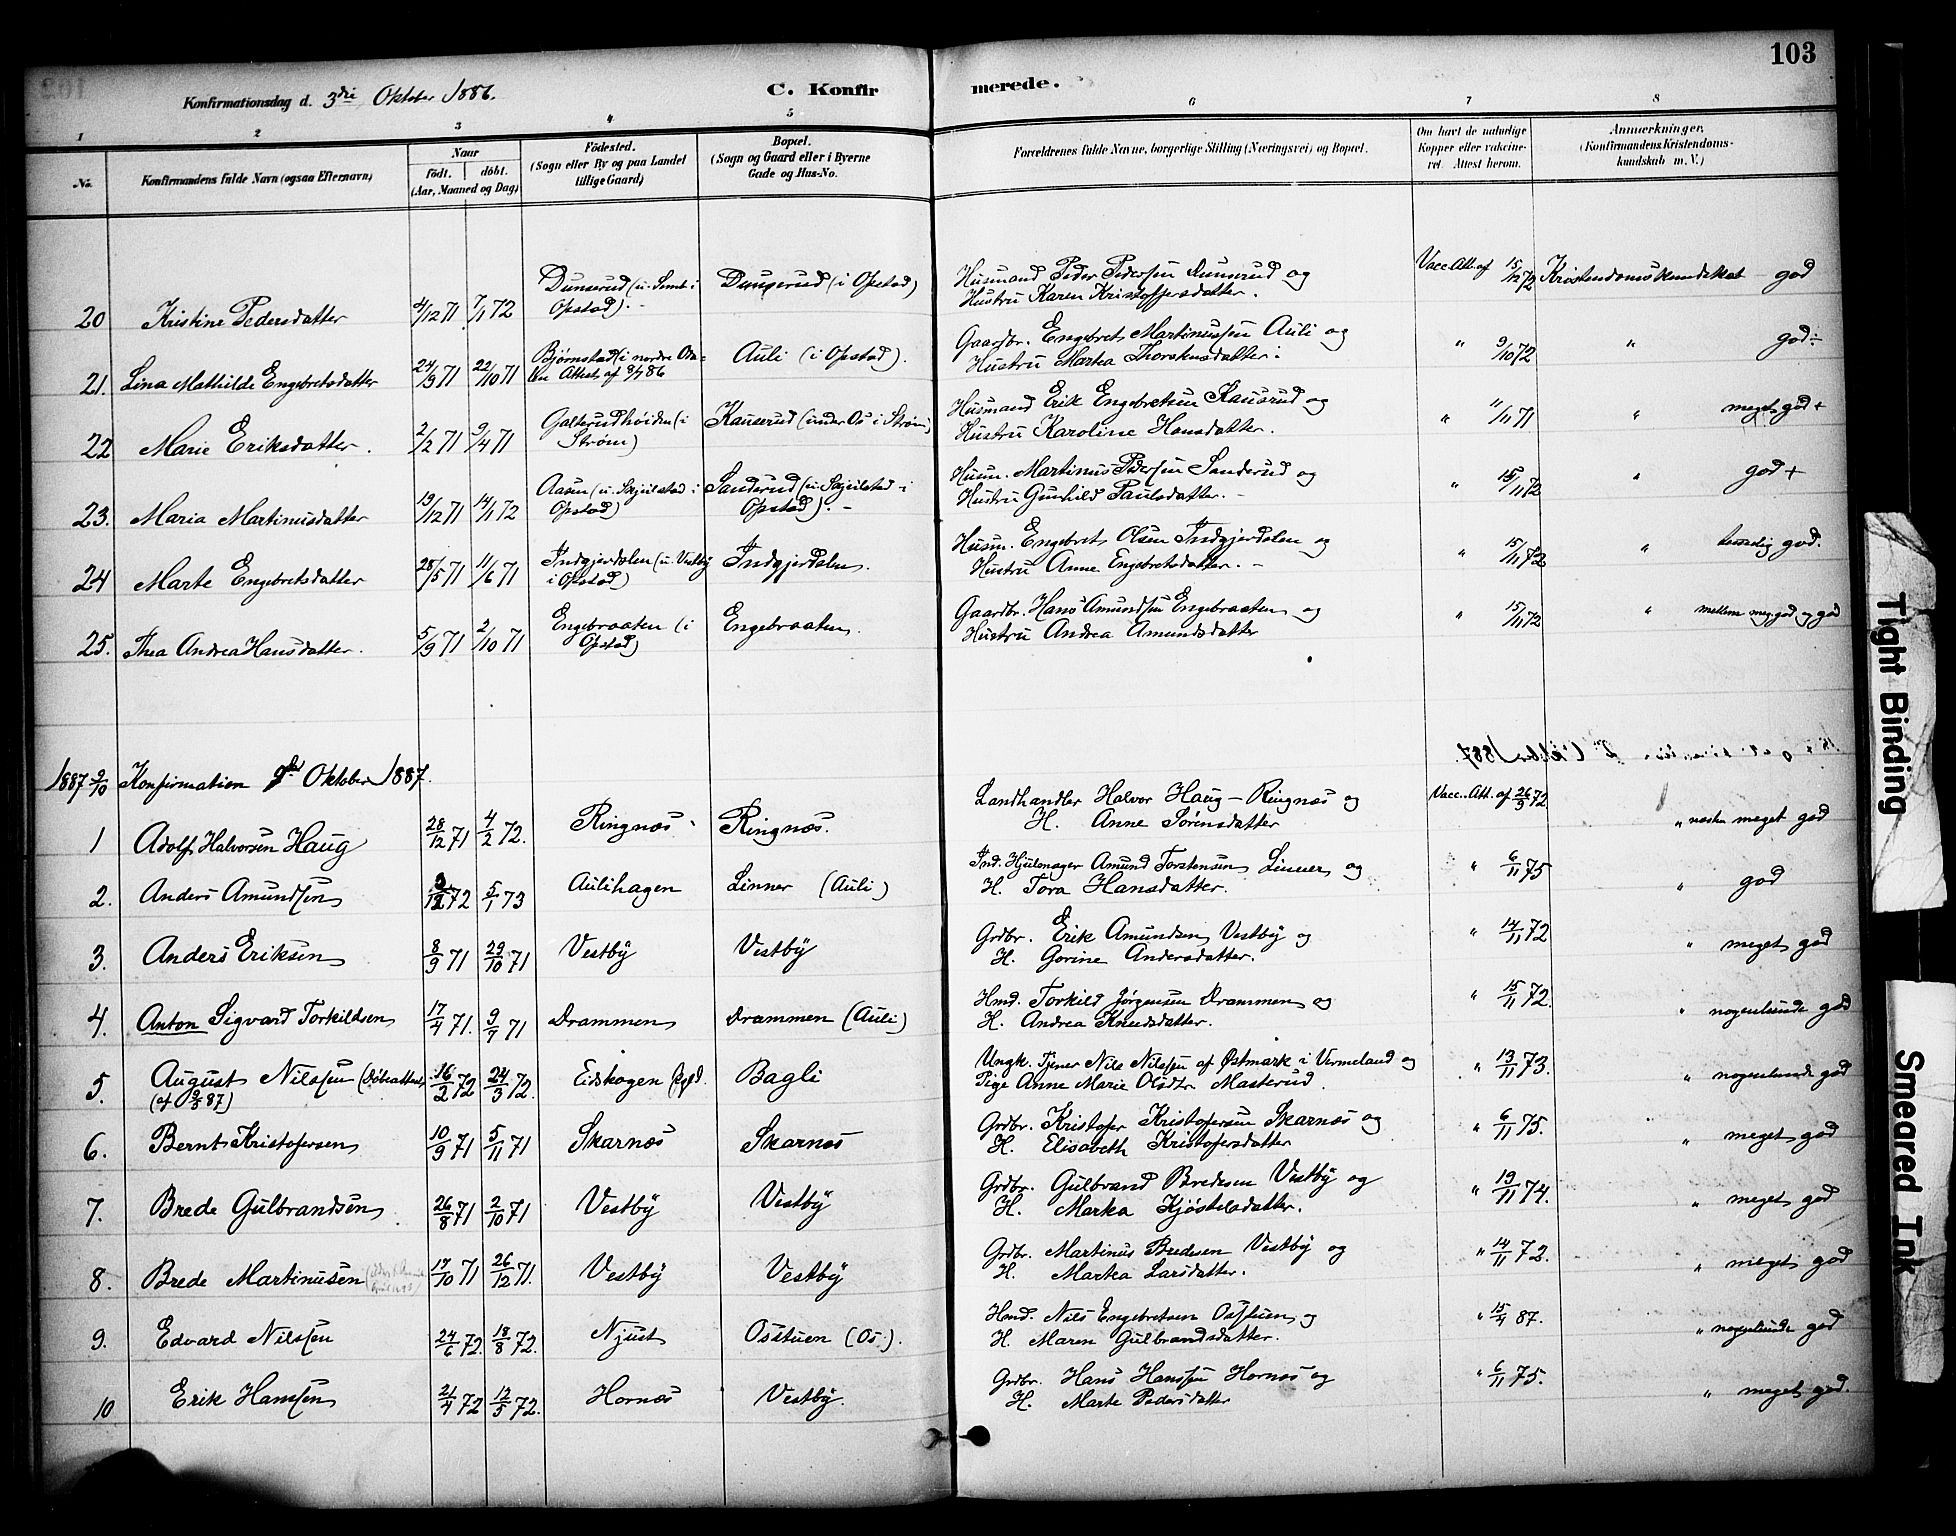 103
Konfirmationsdag d. 3die Oktober 1886. C. Konfirmerede.
1 2 3 4 5 6 7 8
No. Konfirmandens fulde Navn (ogsaa Efternavn) Naar födt. döbt. (Aar, Maaned og Dag) Födested. (Sogn eller By og paa Landet tillige Gaard) Bopæl. (Sogn og Gaard eller i Byerne Gade og Hus-No. Forældrenes fulde Navne, borgerlige Stilling (Næringsvei) og Bopæl. Om havt de naturlige Kopper eller vakcineret. Attest herom. Anmærkninger. (Konfirmandens Kristendomskundskab m. V.)
20 Kristine Pedersdatter 4/12 71 7/1 72 Dunserud (u. Semb i Opstad) Dunserud (i Opstad) Husmand Peder Pedersen Dunserud og Hustru Karen Kristoffersdatter. Vacc. Att. af 15/12 72 Kristendomskundskab god
21. Lina Mathilde Engebretsdatter 24/3 71 22/10 71 Bjørnstad (i nordre Odalen Attest af 8/7 86 Auli (i Opstad). Gaardbr. Engebret Martinussen Auli og Hustru Marka Thorstensdatter. " 9/10 72 " god÷
22 Marie Eriksdatter. 2/2 71 9/4 71 Galterudhøiden (i Strøm) Kauserud (under Os i Strøm) Husmand Erik Engebretsen Kauserud og Hustru Karoline Hansdatter. " 11/11 71 " meget god +
23. Maria Martinusdatter 19/12 71 14/1 72 Aasen (u. Skjeilstad i Opstad) Sanderud (u. Skjeilstad i Opstad). Husm. Martinus Pedersen Sanderud og Hustru Gunhild Paulsdatter. " 15/11 72 " god +
24 Marte Engebretsdatter 28/5 71 11/6 71 Indgjerdalen (u. Vestby i Opstad) Indgjerdalen. Husm. Engebret Olsen Indgjerdalen og Hustru Anne Engebretsdatter. " 15/11 72 " god.
25. Thea Andrea Hansdatter. 5/9 71 2/10 71 Engebraaten (i Opstad) Engebraaten. Gaardbr. Hans Amundsen Engebraaten og Hustru Andrea Amundsdatter " 15/11 72 " mellem meg. god og god
1887 9/10 Konfirmation 9de Oktober 1887.
1 Adolf Halvorsen Haug 28/12 71 4/2 72. Ringnæs Ringnæs. Landhandler Halvor Haug - Ringnæs og H. Anne Sørensdatter Vacc. Att. af 26/9 72 " næsten meget god
2. Anders Amundsen 3/12 72 5/1 73 Aulihagen Linner (Auli) Ind. Hjulmager Amund Torstensen Linner og H. Tora Hansdatter. " 6/11 75 " god
3. Anders Eriksen 8/9 71 29/10 71 Vestby Vestby Grdbr. Erik Amundsen Vestby og H. Gorine Andersdatter. " 14/11 72 " meget god
4. Anton Sigvard Torkildsen 17/4 71. 9/7 71 Drammen Drammen (Auli) Hmd. Torkild Jørgensen Drammen og H. Andrea Knudsdatter. " 15/11 72. " nogenlunde god
5. August Nilssen (Døbeattest af 9/3 87) 16/2 72 24/3 72. Eidskogen Bagli Ungk. Tjener Nils Nilssen af Østmark i Vermeland og Pige Anne Marie Olsdtr Masterud. " 13/11 73. " nogenlunde god
6. Bernt Kristofersen 10/9 71 5/11 71 Skarnæs Skarnæs Grdbr. Kristofer Kristofersen Skarnæs og H. Elisabeth Kristofersdatter " 6/11 75. " meget god
7. Brede Gulbrandsen 26/8 71 2/10 71 Vestby Vestby Grdbr. Gulbrand Bredesen Vestby og H. Marka Kjøstelsdatter. " 19/11 74. " meget god
8. Brede Martinusen 17/10 71 26/12 71. Vestby Vestby Grdbr. Martinus Bredesen Vestby og H. Marka Larsdatter. " 14/11 72. " meget god
9. Edvard Nilssen 24/6 72. 18/8 72. Njust Osstuen (Os.). Hmd. Nils Engebretsen Osstuen og H. Maren Gulbrandsdatter. " 15/4 87. " nogenlunde god
10 Erik Hanssen 21/4 72 12/5 72. Hornæs Vestby. Grdbr. Hans Hanssen Hornæs og H. Marte Pedersdatter " 6/11 75. " meget god.
Tight Binding
Smeared Ink